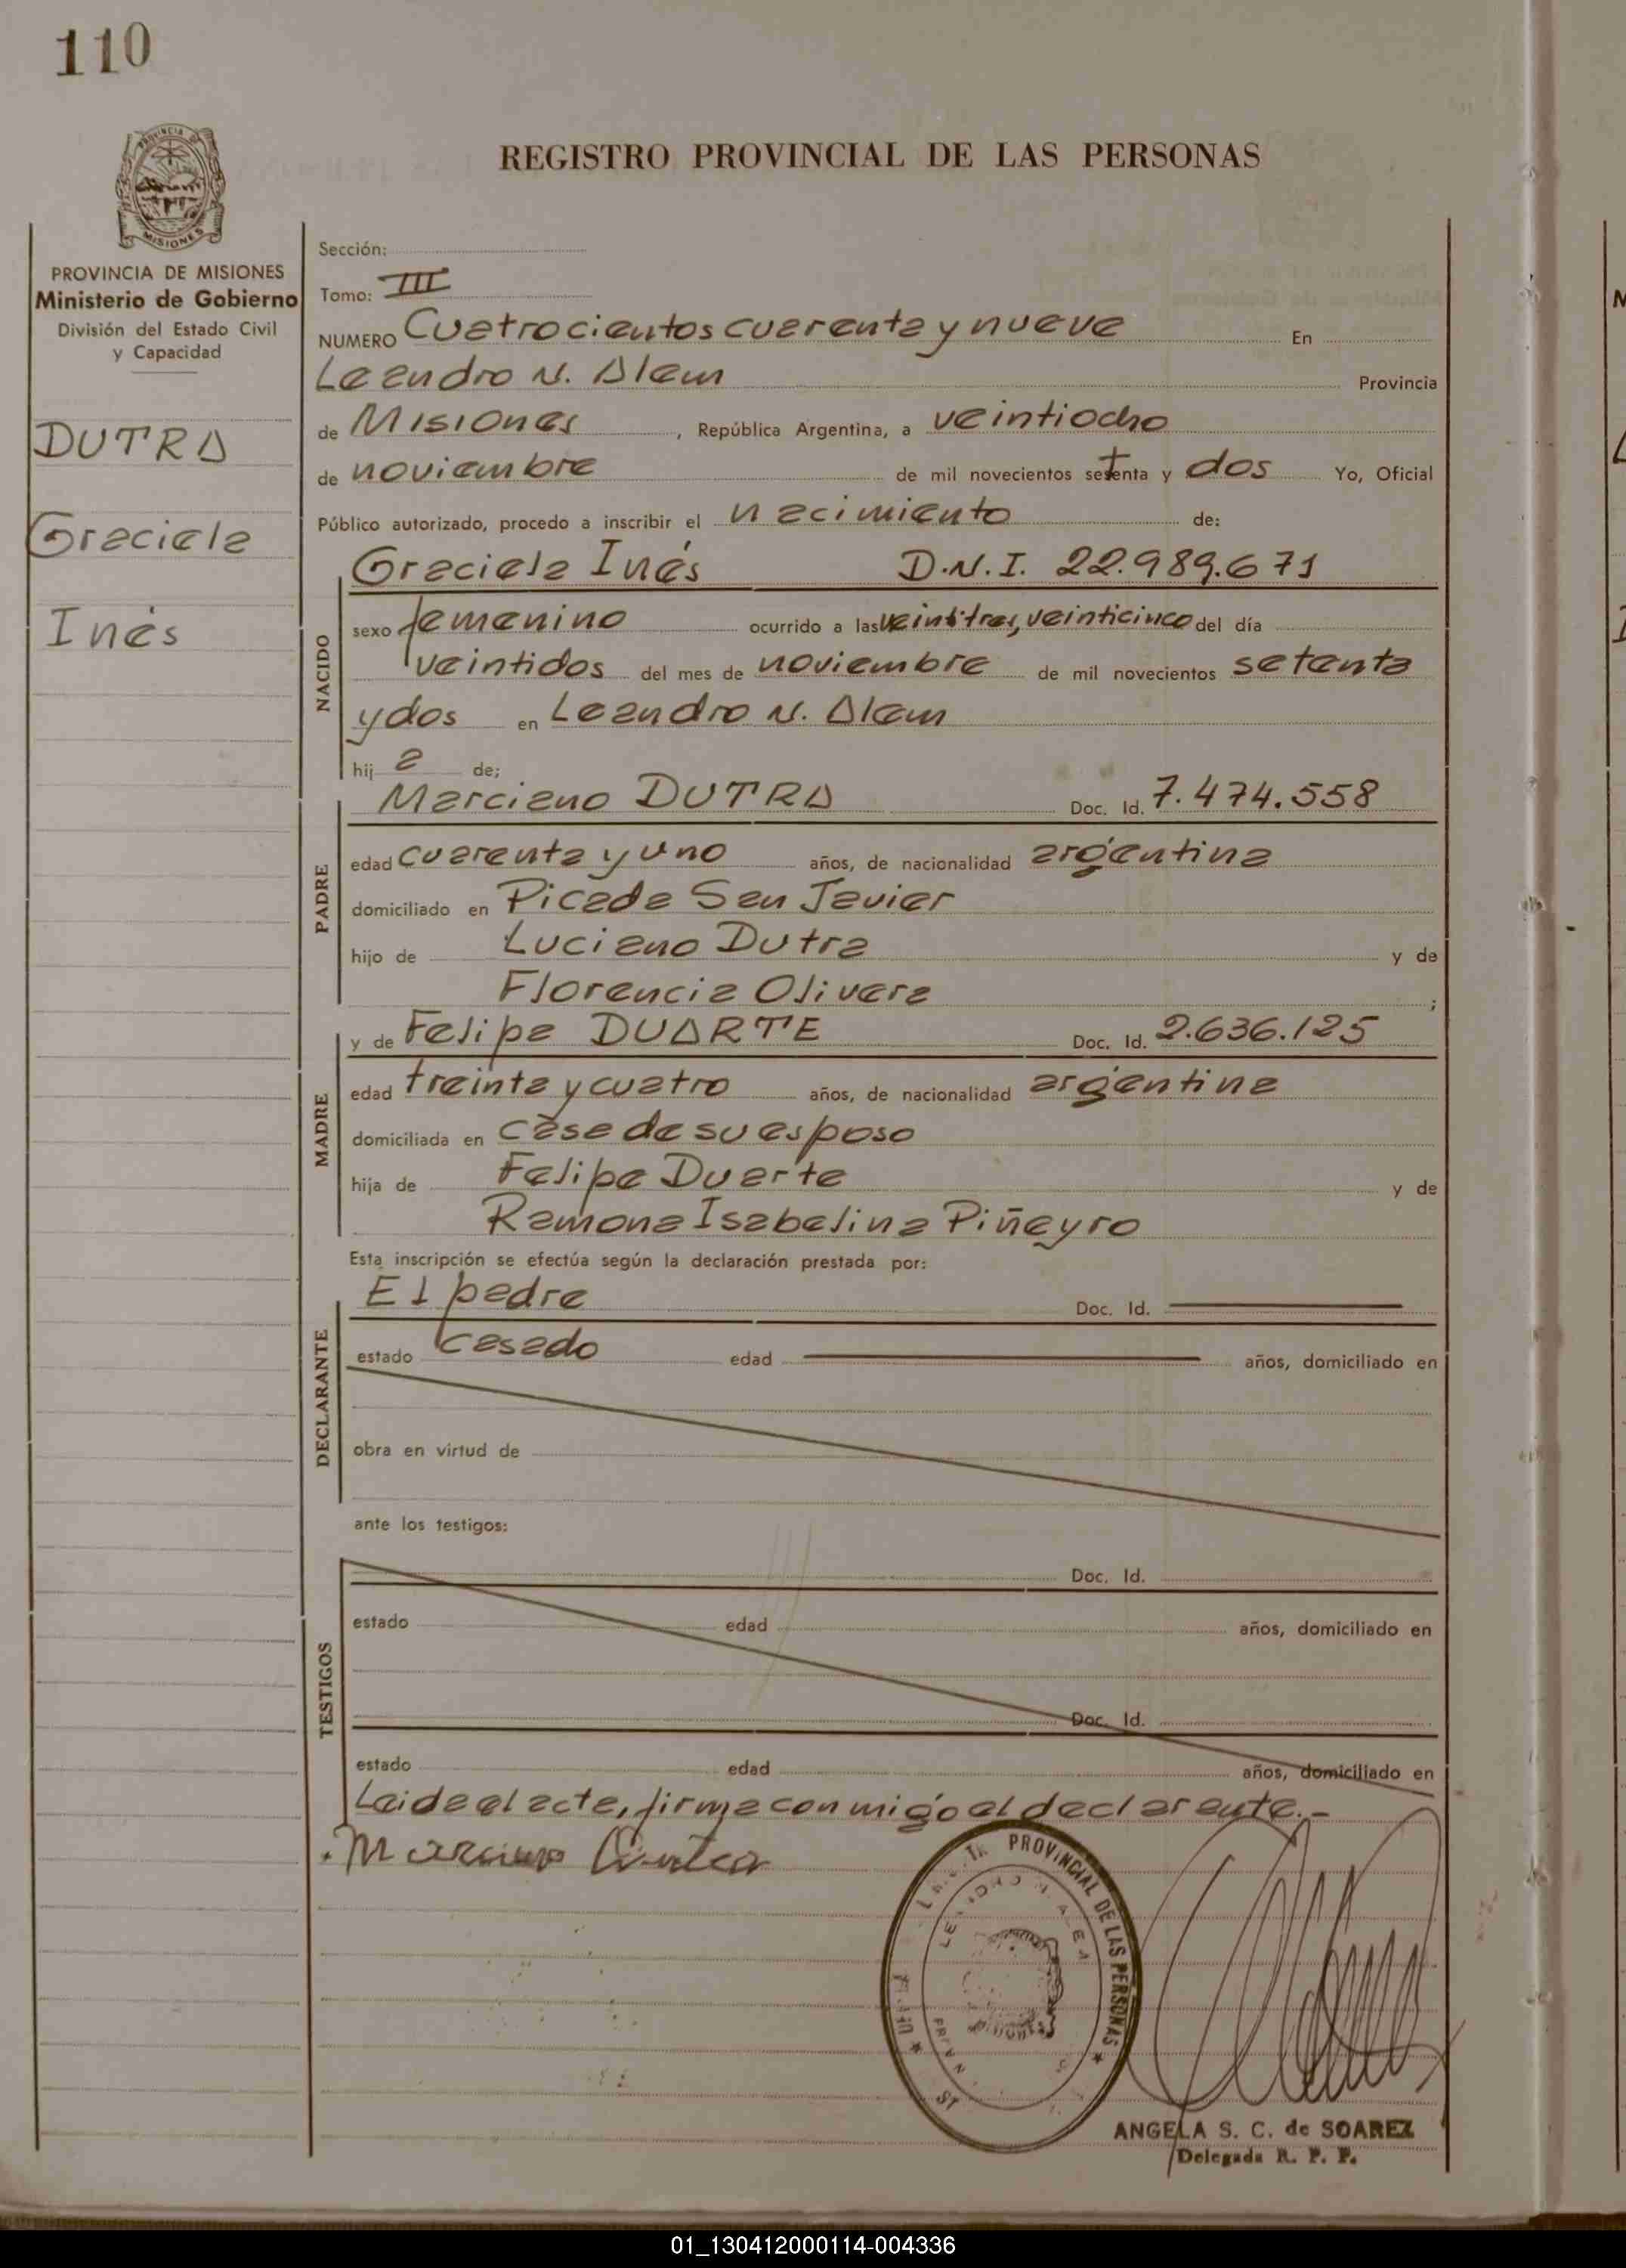 110
REGISTRO PROVINCIAL DE LAS PERSONAS
MISIONES
PROVINCIA DE MISIONES
Ministerio de Gobierno
División del Estado Civil
y Capacidad
DUTRA
Graciela
Inés
Sección:
Tomo: III
NUMERO Cuatrocientos cuarenta y nueve En
Leandro N. Alem Provincia
de Misiones, República Argentina, a veintiocho
de noviembre de mil novecientos setenta y dos Yo, Oficial
Público autorizado, procedo a inscribir el nacimiento de:
NACIDO
Graciela Inés D.N.I. 22.989.671
sexo femenino ocurrido a las veintitres, veinticinco del día
veintidos del mes de noviembre de mil novecientos setenta
y dos en Leandro N. Alem
hij a de;
PADRE
Marciano DUTRA Doc. Id. 7.474.558
edad cuarenta y uno años, de nacionalidad argentina
domiciliado en Picada San Javier
hijo de Luciano Dutra y de
Florencia Olivera ;
MADRE
y de Felipa DUARTE Doc. Id. 2.636.125
edad treinta y cuatro años, de nacionalidad argentina
domiciliada en casa de su esposo
hija de Felipe Duarte y de
Ramona Isabelina Piñeyro
Esta inscripción se efectúa según la declaración prestada por:
DECLARANTE
El padre Doc. Id.
estado casado edad años, domiciliado en
obra en virtud de
ante los testigos:
TESTIGOS
Doc. Id.
estado edad años, domiciliado en
Doc. Id.
estado edad años, domiciliado en
Leida el acta, firma conmigo el declarante.-
PROVINCIAL DE LAS PERSONAS
ANGELA S. C. de SOAREZ
Delegada R. P. P.
01_130412000114-004336